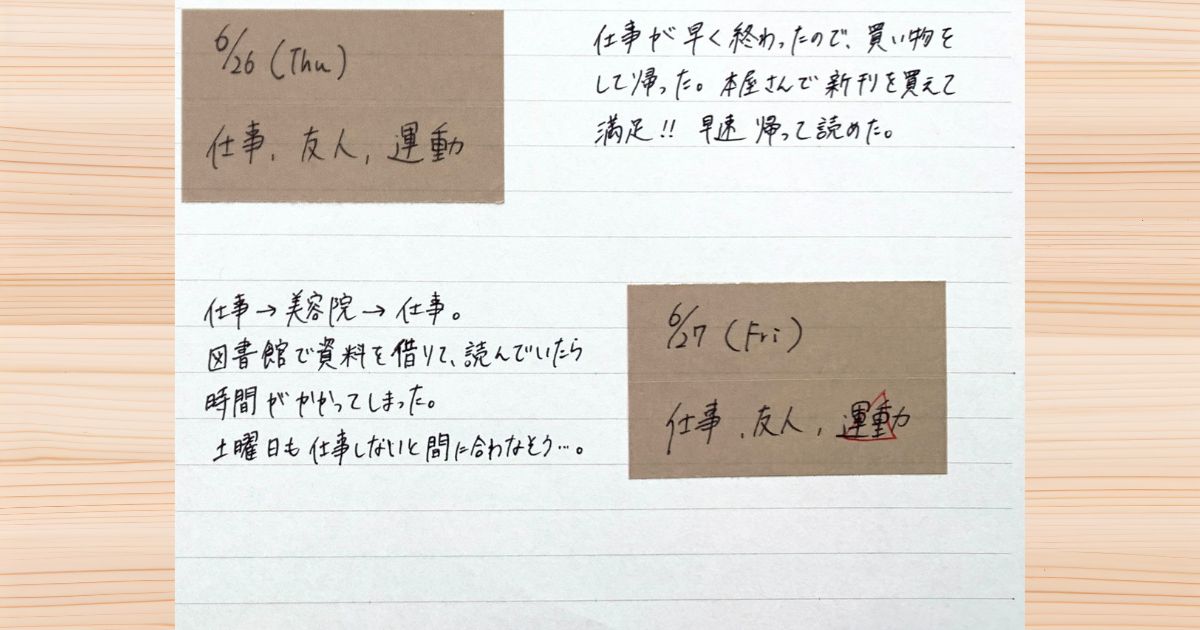 6/26 (Thu)
仕事, 友人, 運動
仕事が早く終わったので、買い物を
して帰った。本屋さんで新刊を買えて
満足!! 早速帰って読めた。
仕事→美容院→仕事。
図書館で資料を借りて、読んでいたら
時間がかかってしまった。
土曜日も仕事しないと間に合わなそう…。
6/27 (Fri)
仕事, 友人, 運動